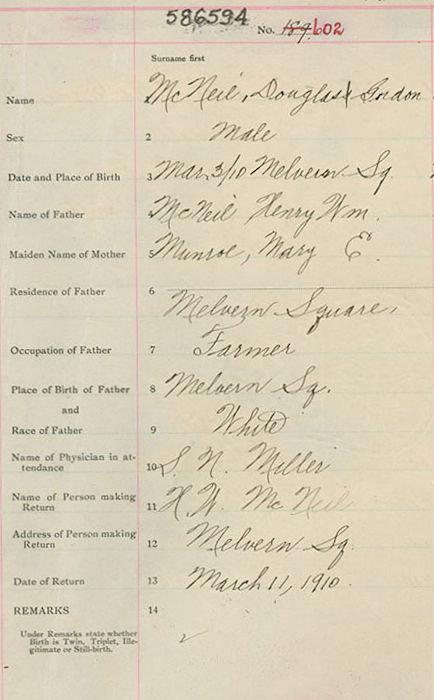 586594
No. 189 602
Surname first
Name McNeil, Douglas Gordon
Sex 2 Male
Date and Place of Birth 3 Mar. 3/10 Melvern Sq.
Name of Father McNeil Henry Wm.
Maiden Name of Mother 5 Munroe, Mary E.
Residence of Father 6
Melvern Square,
Occupation of Father 7 Farmer
Place of Birth of Father 8 Melvern Sq.
and
Race of Father 9 White
Name of Physician in at-
tendance 10 S. N. Miller
Name of Person making
Return 11 H. W. McNeil
Address of Person making
Return 12 Melvern Sq.
Date of Return 13 March 11, 1910.
REMARKS 14
Under Remarks state whether
Birth is Twin, Triplet, Ille-
gitimate or Still-birth.